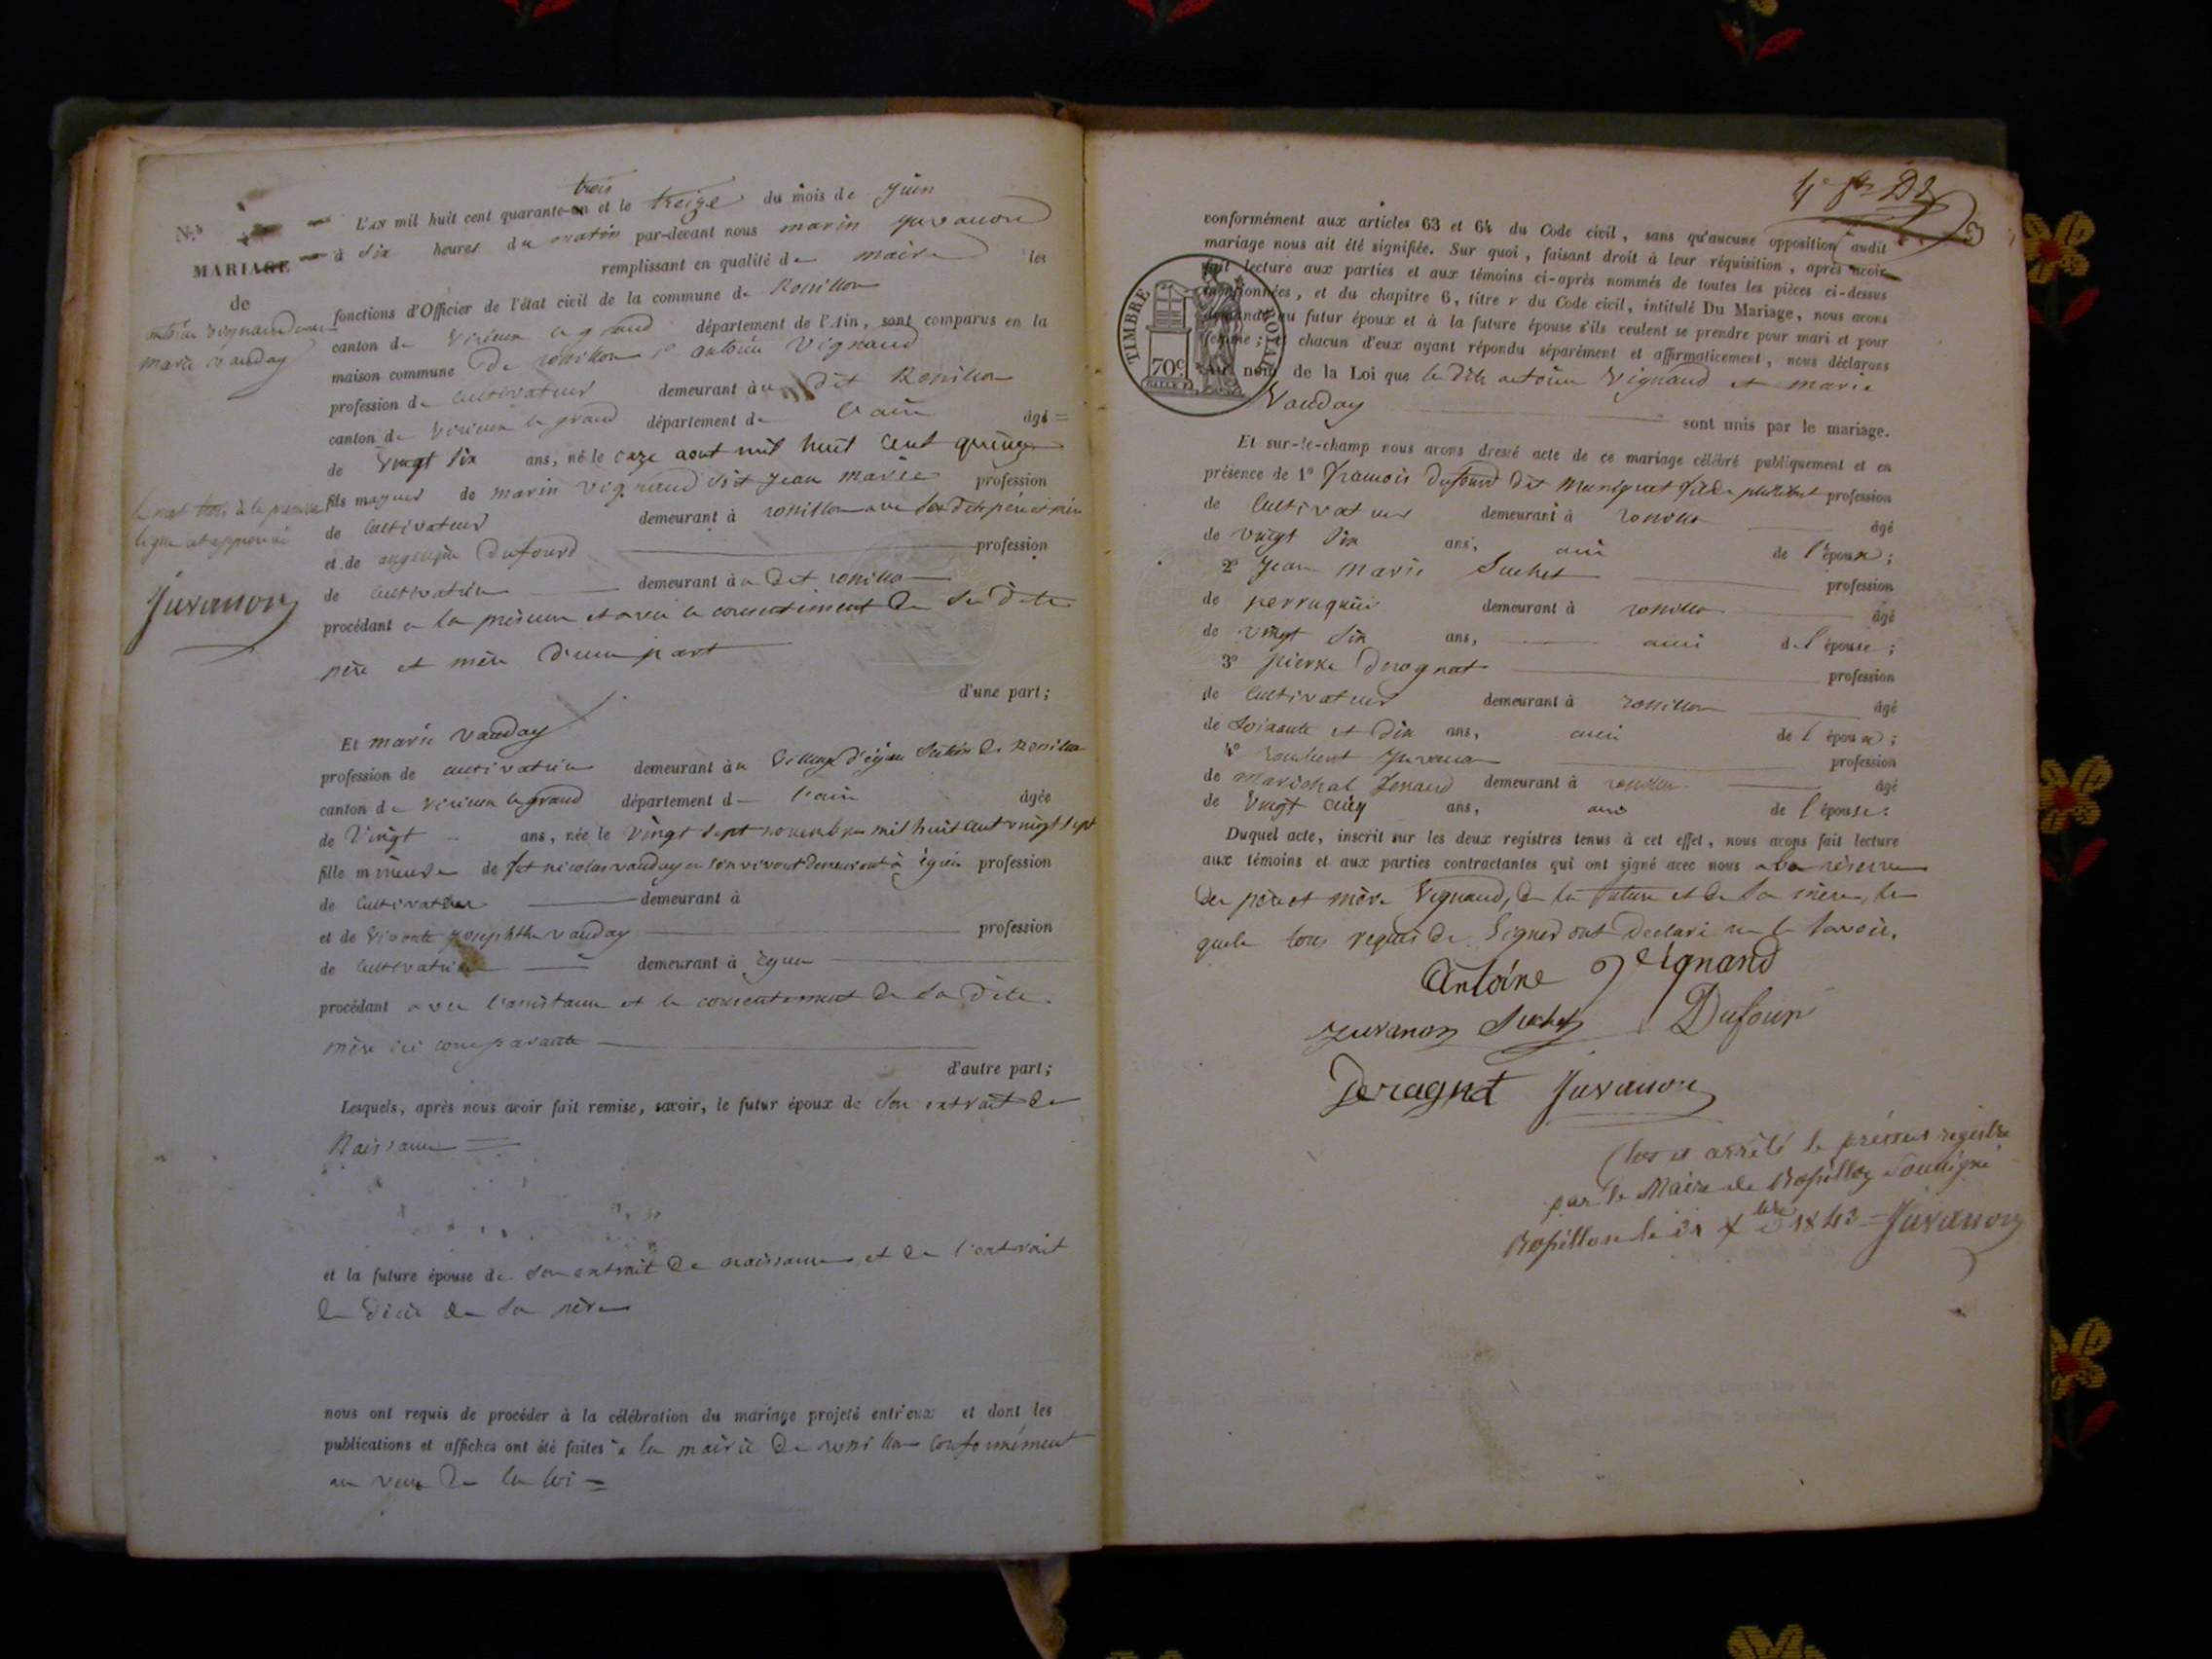 N.°
MARIAGE
de
antoine vignaud avec
marie vauday
trois
L'AN mil huit cent quarante-un et le treize du mois de juin
à six heures du matin par-devant nous marin juvanon
remplissant en qualité de maire les
fonctions d'Officier de l'état civil de la commune de Rossillon
canton de virieu le grand département de l'Ain, sont comparus en la
maison commune de rossillon antoine vignaud
profession de cultivateur demeurant au dit Rossillon
canton de virieu le grand département de l'ain âgé
de vingt six ans, né le onze aout mil huit cent quinze
fils majeur de marin vignaud dit jean marie profession
le mot trois à la première
ligne est approuvé
juvanon
de cultivateur demeurant à rossillon
et de angelique dufourd profession
de cultivatrice demeurant au dit rossillon
procédant en la présence et avec le consentement de ses dits
père et mère d'une part
d'une part;
Et marie vauday
profession de cultivatrice demeurant au village d'égieu section de Rossillon
canton de virieu le grand département de l'ain âgée
de vingt ans, née le vingt sept novembre mil huit cent vingt sept
fille mineure de feu nicolas vauday en son vivant demeurant à égieu profession
de cultivateur demeurant à
et de vauday profession
de cultivatrice demeurant à égieu
procédant avec l'assistance et le consentement de sa dite
mère ici comparante
d'autre part;
Lesquels, après nous avoir fait remise, savoir, le futur époux de son extrait de
Naissance
et la future épouse de son extrait de naissance et de l'extrait
de décès de son père
nous ont requis de procéder à la célébration du mariage projeté entr'eux et dont les
publications et affiches ont été faites à la mairie de rossillon conformément
au vœu de la loi
conformément aux articles 63 et 64 du Code civil, sans qu'aucune opposition audit
mariage nous ait été signifiée. Sur quoi, faisant droit à leur réquisition, après avoir
fait lecture aux parties et aux témoins ci-après nommés de toutes les pièces ci-dessus
mentionnées, et du chapitre 6, titre v du Code civil, intitulé Du Mariage, nous avons
demandé au futur époux et à la future épouse s'ils veulent se prendre pour mari et pour
femme; et chacun d'eux ayant répondu séparément et affirmativement, nous déclarons
au nom de la Loi que le dits antoine vignaud et marie
vauday sont unis par le mariage.
TIMBRE ROYAL
70c
Et sur-le-champ nous avons dressé acte de ce mariage célébré publiquement et en
présence de 1° francois dufourd dit profession
de cultivateur demeurant à rossillon âgé
de vingt six ans, ami de l'époux;
2° jean marie Suchet profession
de perruquier demeurant à rossillon âgé
de vingt six ans, ami de l'épouse;
3° pierre derognat profession
de cultivateur demeurant à rossillon âgé
de soixante et dix ans, ami de l'époux;
4° juvanon profession
de marechal ferrand demeurant à rossillon âgé
de vingt cinq ans, ami de l'épouse.
Duquel acte, inscrit sur les deux registres tenus à cet effet, nous avons fait lecture
aux témoins et aux parties contractantes qui ont signé avec nous a la réserve
des père et mère vignaud, de la future et de sa mère, les
quels tous requis de signer ont declaré ne le savoir.
Antoine Vignand
juvanon Suchet Dufour
Deragnat juvanon
Clos et arrêté le présent registre
par le Maire de Rossillon soussigné
Rossillon le 31 Xbre 1843 Juvanon